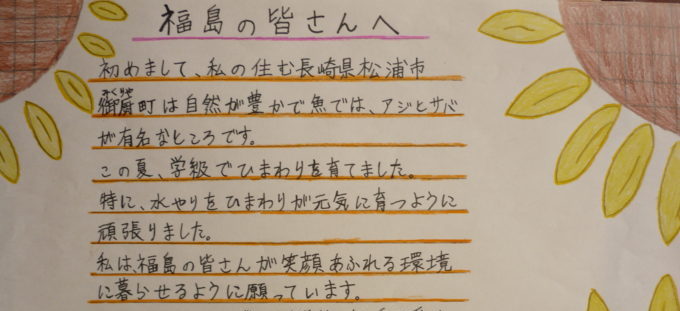 福島の皆さんへ
初めまして、私の住む長崎県松浦市
御厨町は自然が豊かで魚では、アジとサバ
が有名なところです。
この夏、学級でひまわりを育てました。
特に、水やりをひまわりが元気に育つように
頑張りました。
私は、福島の皆さんが笑顔あふれる環境
に暮らせるように願っています。